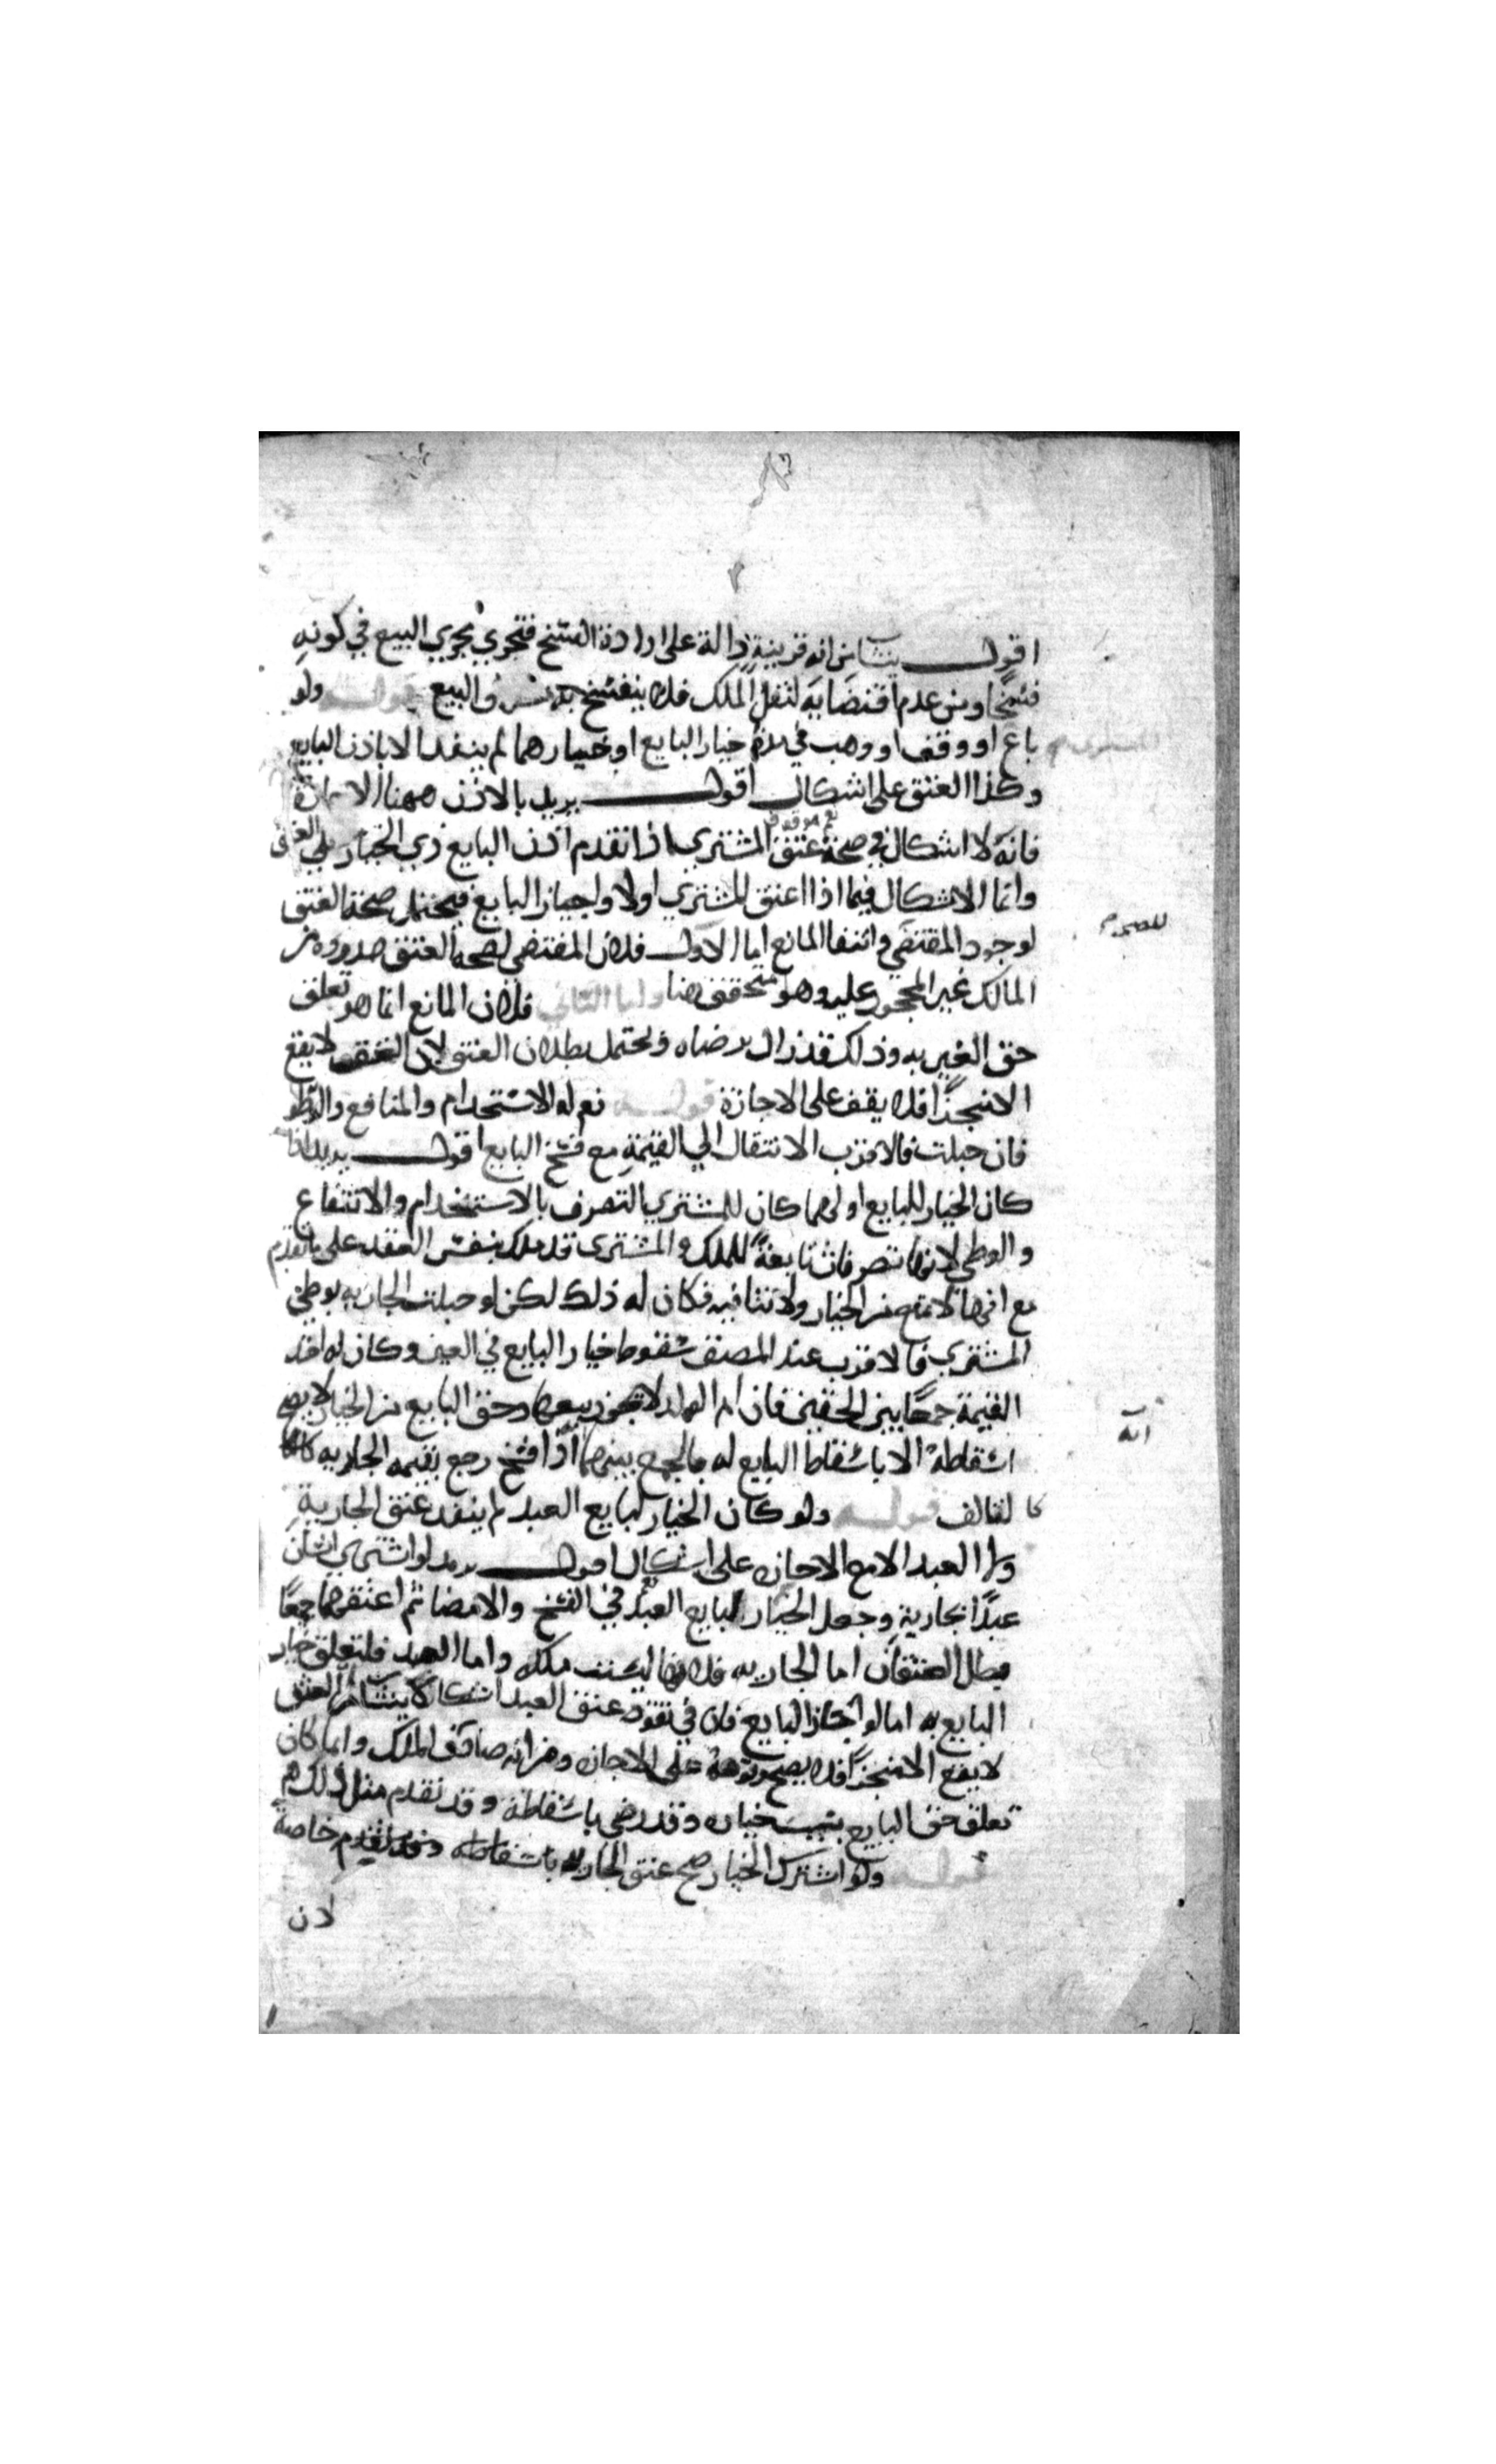 اقول ينشا من انه قرينة دالة على ارادة الفسخ فتجري مجري البيع في كونه
فسخا ومن عدم اقتضايه لنقل الملك فلا ينفسخ به والبيع قوله ولو
باع او وقف او وهب في مدة خيار البايع او خيارهما لم ينفذ الا باذن البايع
وكذا العتق على اشكال اقول يريد بالاذن ههنا الاجازة
فانه لا اشكال في صحة عتق المشتري اذا تقدم اذن البايع ذي الخيار على العتق
وانما الاشكال فيما اذا اعتق المشتري اولا واجاز البايع فيحتمل صحة العتق
لوجود المقتضي وانتفا المانع اما الاول فلان المقتضي لصحة العتق صدوره من
المالك غير المحجور عليه وهو متحقق هنا واما الثاني فلان المانع انما هو تعلق
حق الغير به وذلك قد زال برضاه ويحتمل بطلان العتق لان العتق لا يقع
الا منجزا فلا يقف على الاجازة قوله نعم له الاستخدام والمنافع والوطو
فان حبلت فالاقرب الانتقال الي القيمة مع فسخ البايع اقول يريد اذا
كان الخيار للبايع او لهما كان للمشتري التصرف بالاستخدام والانتفاع
والوطي لانها تصرفات تابعة للملك والمشتري قد ملك بنفس العقد على ما تقدم
مع انها لا تمنع من الخيار ولا تنافيه فكان له ذلك لكن لو حبلت الجاريه بوطي
المشتري فالاقرب عند المصنف سقوط خيار البايع في العين وكان له اخذ
القيمة جمعا بين الحقين فان ام الولد لا يجوز بيعها وحق البايع من الخيار لا يصح
اسقاطه الا باسقاط البايع له فالجمع بينهما اذا فسخ رجع بقيمه الجاريه
كالتالف قوله ولو كان الخيار لبايع العبد لم ينفذ عتق الجارية
ولا العبد الا مع الاجازه على اشكال اقول يريد لو اشتري انسان
عبدا بجارية وجعل الخيار لبايع العبد في الفسخ والامضا ثم اعتقهما جمعا
بطل العتقان اما الجاريه فلانها ليست ملكه واما العبد فلتعلق خيار
البايع به اما لو اجاز البايع فان في نفوذ عتق العبد اشكالا ينشا من ان العتق
لا يقع الا منجزا فلا يصح وقوفه على الاجازه ومن انه صادف الملك وانما كان
تعلق حق البايع بسبب خياره وقد رضي باسقاطه وقد تقدم مثل ذلك
قوله ولو اشترك الخيار صح عتق الجاريه خاصة
لان